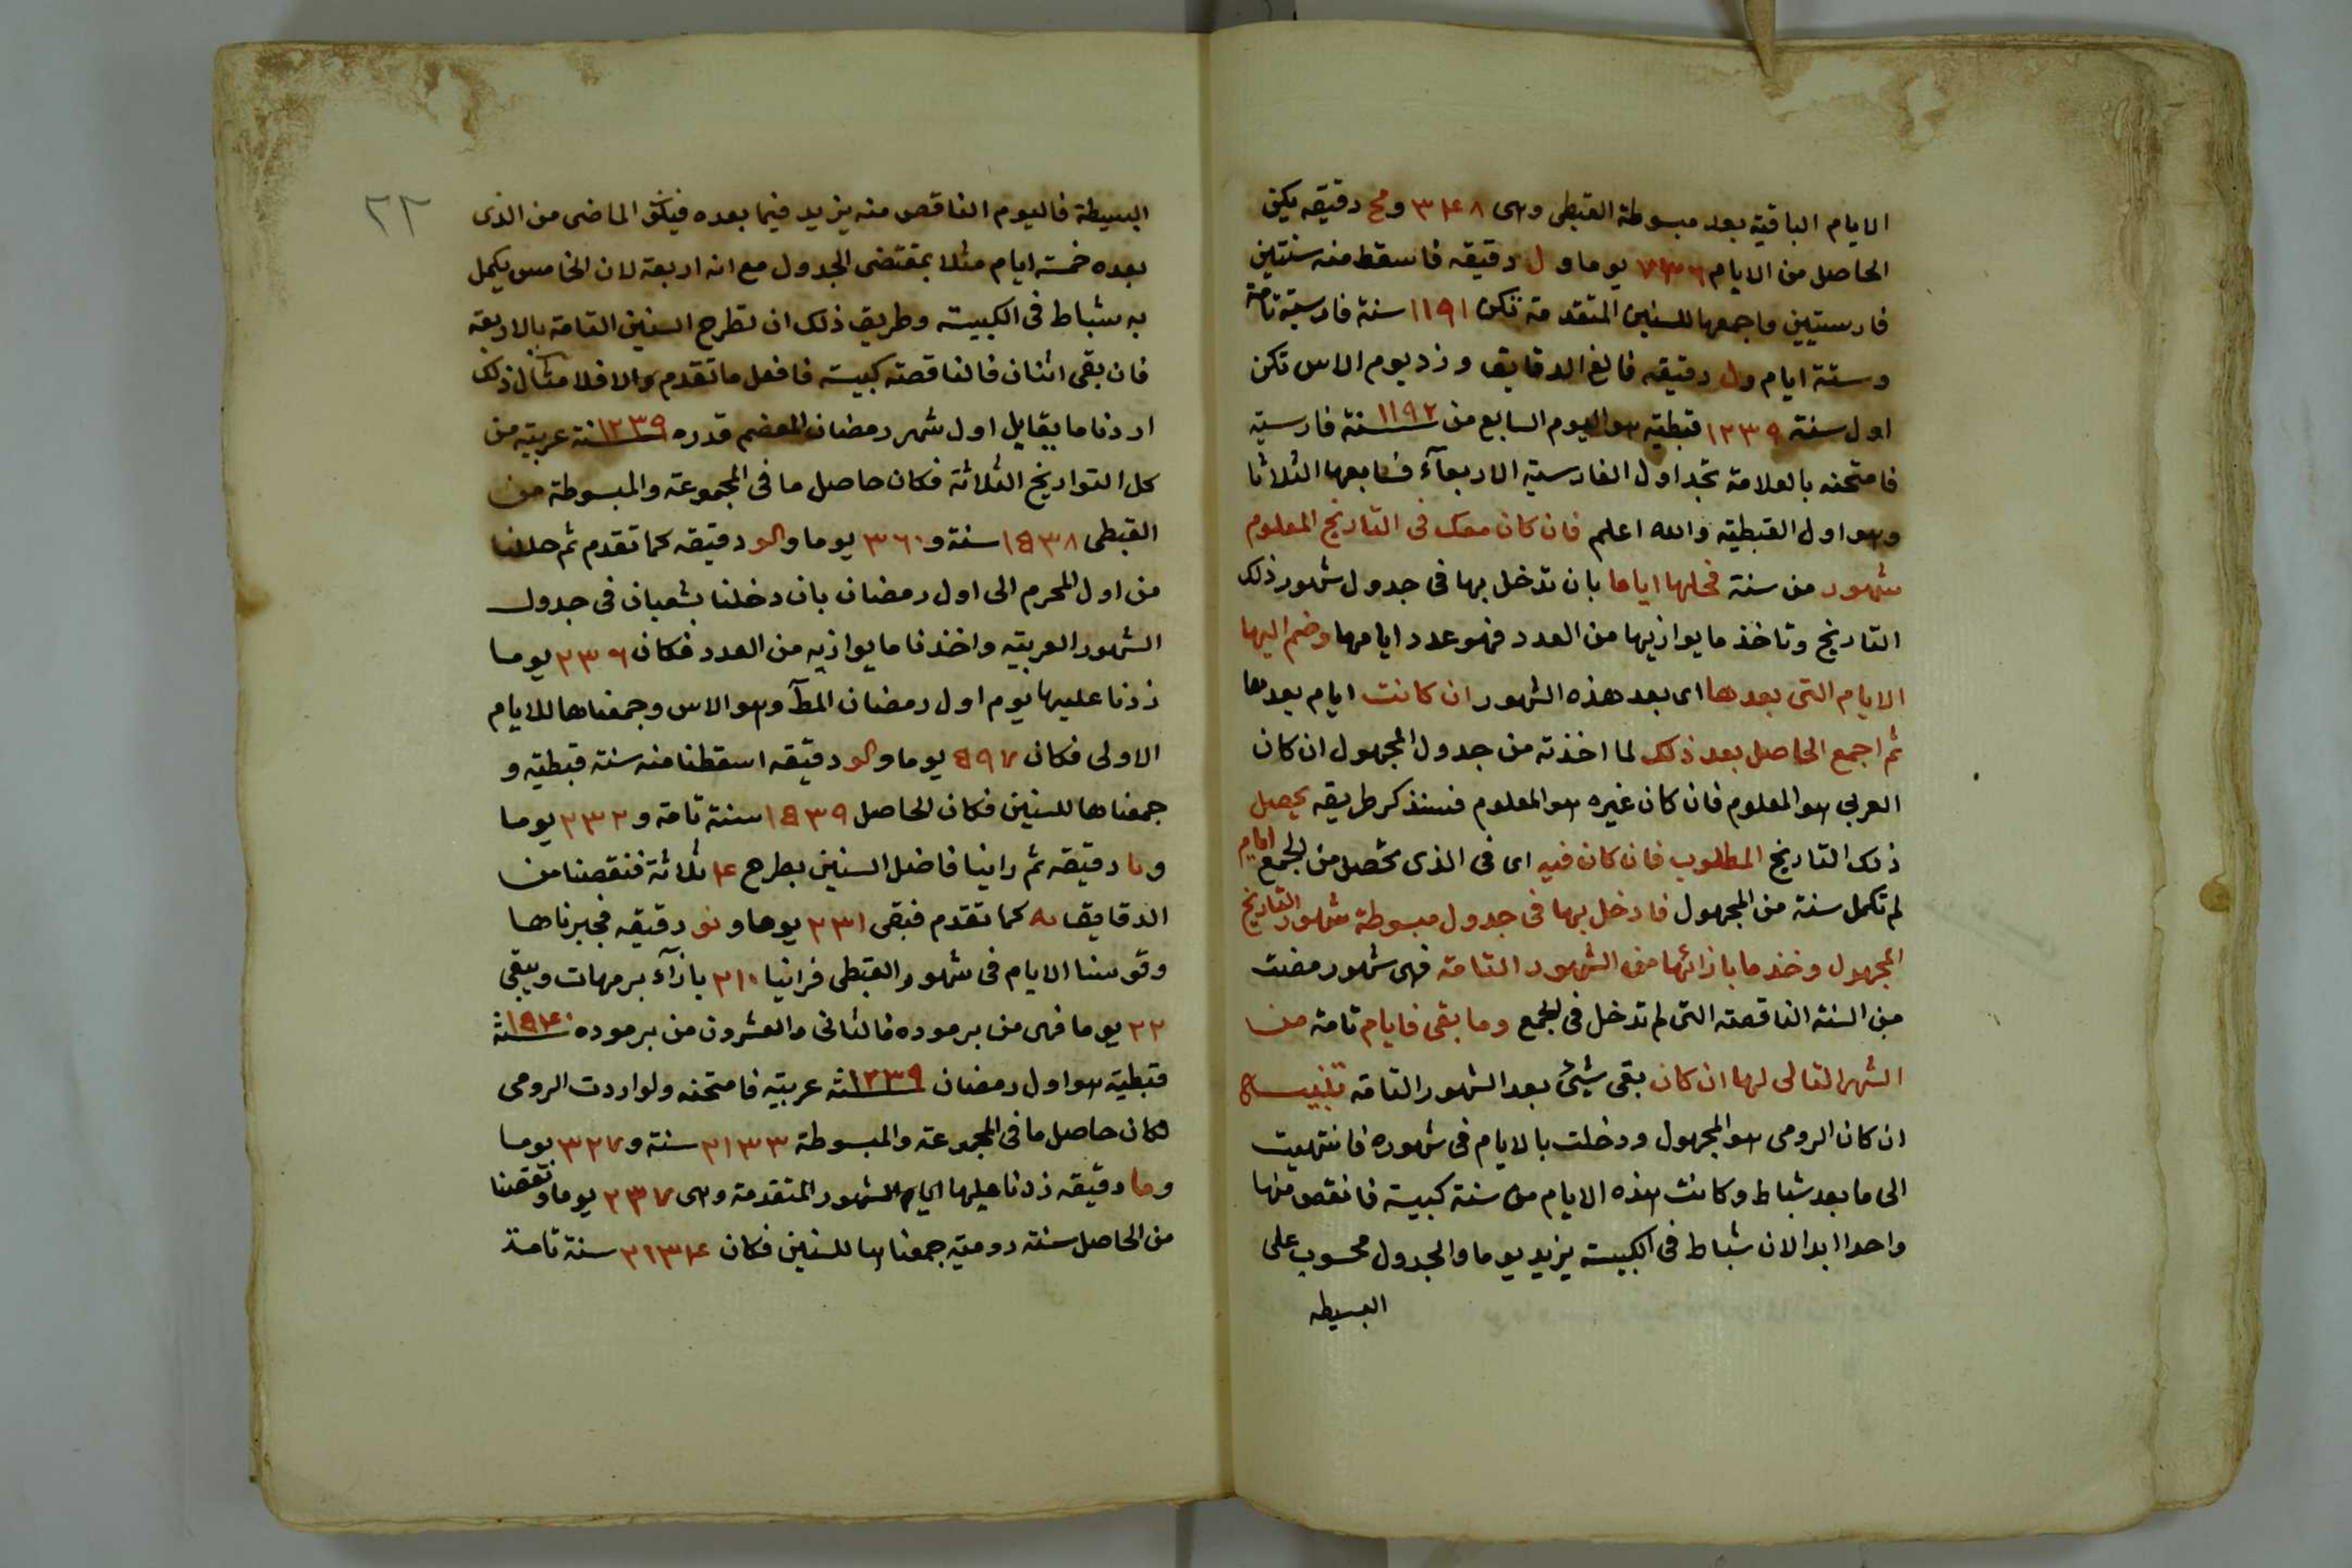 الايام الباقية بعد مبسوطة القبطى وهى ٣٤٨ ومح دقيقه يكن
الحاصل من الايام ٧٣٦ يوما ول دقيقه فاسقط منه سنتين
فارسيتين واجمعها للسنين المتقدمة تكن ١١٩١ سنة فارسية تامة
وستة ايام ول دقيقه فالغ الدقايق وزد يوم الاس تكن
اول سنة ١٢٣٩ قبطية هو اليوم السابع من ١١٩٢ سنة فارسية
فامتحنه بالعلامة تجد اول الفارسية الاربعآء فسابعها الثلاثا
وهو اول القبطية والله اعلم فان كان معك فى التاريخ المعلوم
شهور من سنة فحلها اياما بان تدخل بها فى جدول شهور ذلك
التاريخ وتاخذ ما يوازيها من العدد فهو عدد ايامها وضم اليها
الايام التى بعدها اى بعد هذه الشهور ان كانت ايام بعدها
ثم اجمع الحاصل بعد ذلك لما اخذته من جدول المجهول ان كان
العربى هو المعلوم فان كان غيره هو المعلوم فسنذكر طريقه يحصل
ذلك التاريخ المطلوب فان كان فيه اى فى الذى تحصل من الجمع ايام
لم تكمل سنة من المجهول فادخل بها فى جدول مبسوطة شهور التاريخ
المجهول وخذ ما بازائها من الشهور التامة فهى شهور مضت
من السنة الناقصة التى لم تدخل فى الجمع وما بقى فايام تامة من
الشهر التالى لها ان كان بقى شيئ بعد الشهور التامة تنبيه
ان كان الرومى هو المجهول ودخلت بالايام فى شهوره فانتهيت
الى ما بعد شباط وكانت هذه الايام من سنة كبيسة فانقص منها
واحدا ابدا لان شباط فى الكبيسة يزيد يوما والجدول محسوب على
البسيطه
٢٢
البسيطة فاليوم الناقص منه يزيد فيما بعده فيكن الماضى من الذى
بعده خمسة ايام مثلا بمقتضى الجدول مع انه اربعة لان الخامس يكمل
به شباط فى الكبيسة وطريق ذلك ان تطرح السنين التامة بالاربعة
فان بقى اثنان فالناقصة كبيسة فافعل ما تقدم والا فلا مثال ذلك
اردنا ما يقابل اول شهر رمضان المعضم قدره ١٢٣٩سنة عربية من
كل التواريخ الثلاثة فكان حاصل ما فى المجموعة والمبسوطة من
القبطى ١٥٣٨ سنة و٣٦٠ يوما والو دقيقه كما تقدم ثم حللنا
من اول المحرم الى اول رمضان بان دخلنا بشعبان فى جدول
الشهور العربية واخذنا ما يوازيه من العدد فكان ٢٣٦ يوما
زدنا عليها يوم اول رمضان المطآ وهو الاس وجمعناها للايام
الاولى فكان ٥٩٧ يوما والو دقيقه اسقطنا منه سنة قبطية و
جمعناها للسنين فكان الحاصل ١٥٣٩ سنة تامة و ٢٣٢ يوما
ونا دقيقه ثم راينا فاضل السنين بطرح ٤ ثلاثة فنقصنا من
الدقايق نه كما تقدم فبقى ٢٣١ يوما ونو دقيقه فجبرناها
وقوسنا الايام فى شهور القبطى فراينا ٢١٠ بازآء برمهات ويبقى
٢٢ يوما فهى من برموده فالثانى والعشرون من برموده ١٥٤٠سنة
قبطية هو اول رمضان ١٢٣٩سنة عربية فامتحنه ولو اردت الرومى
فكان حاصل ما فى المجموعة والمبسوطة ٢١٣٣ سنة و٣٢٧ يوما
وما دقيقه زدنا عليها ايام الشهور المتقدمة وهى ٢٣٧ يوما ونقصنا
من الحاصل سنة رومية جمعناها للسنين فكان ٢١٣٤ سنة تامة